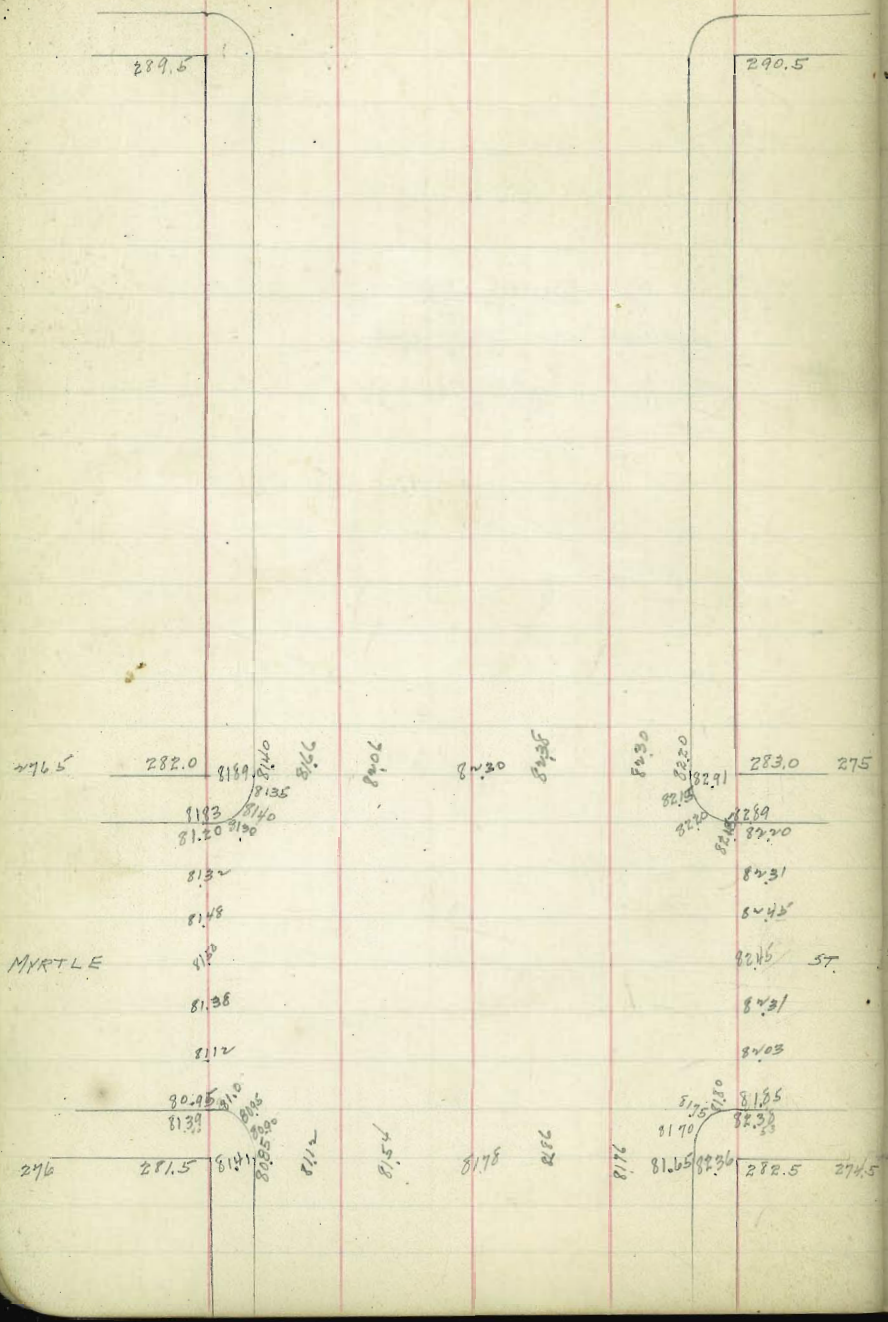 289.5 290.5
276.5 282.0 8189 8140 8166 8206 8230 8238 8230 8220 82.91 283.0 275
8135 8215
8183 8140 8220 8289
81.20 8130 8215 8220
8132 8231
81.48 8245
MYRTLE 8150 8245 ST.
81.38 8231
8112 8203
80.95 81.0 8095 8175 81.80 81.85
8139 8090 8170 82.38
276 281.5 8141 8085 8112 8154 8178 8186 8176 81.65 8236 282.5 274.5